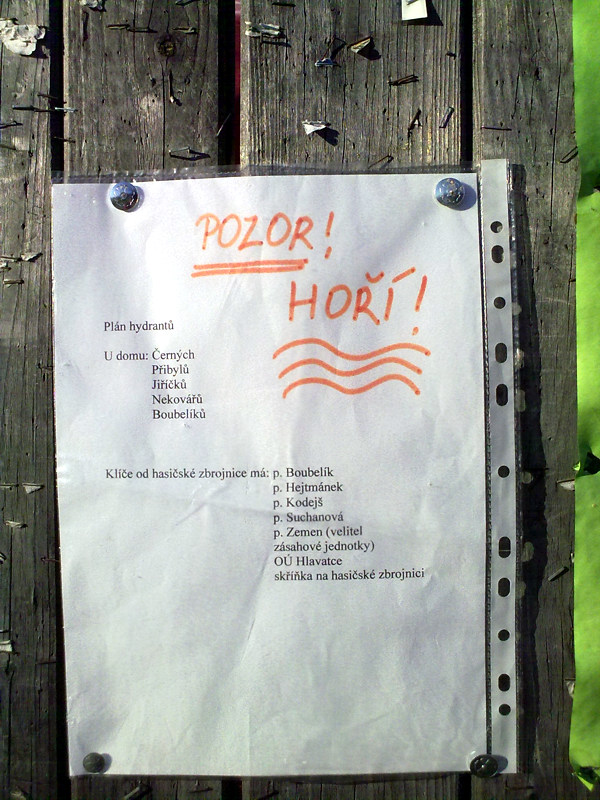 POZOR!
HOŘÍ!
Plán hydrantů
U domu: Černých
Přibylů
Jiříčků
Nekovářů
Boubelíků
Klíče od hasičské zbrojnice má: p. Boubelík
p. Hejtmánek
p. Kodejš
p. Suchanová
p. Zemen (velitel
zásahové jednotky)
OÚ Hlavatce
skříňka na hasičské zbrojnici